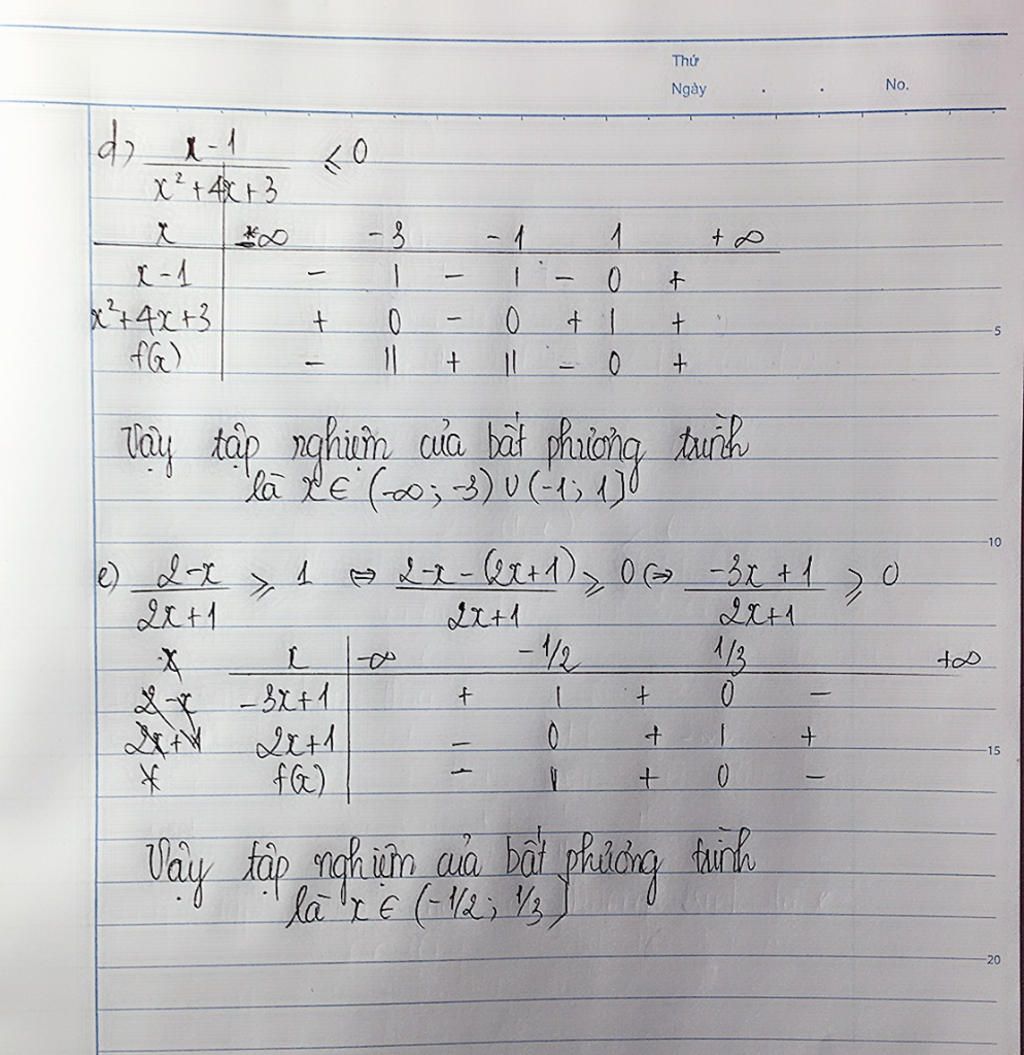 Thứ
Ngày . . No.
d) x-1 / x²+4x+3 ≤ 0
x -∞ -3 -1 1 +∞
x-1 - | - | - 0 +
x²+4x+3 + 0 - 0 + | +
f(x) - || + || - 0 +
5
Vậy tập nghiệm của bất phương trình
là x ∈ (-∞; -3) ∪ (-1; 1]
10
e) 2-x / 2x+1 ≥ 1 ⇔ 2-x-(2x+1) / 2x+1 ≥ 0 ⇔ -3x+1 / 2x+1 ≥ 0
x x -∞ -1/2 1/3 +∞
2-x -3x+1 + | + 0 -
2x+1 2x+1 - 0 + | +
15
f(x) - || + 0 -
Vậy tập nghiệm của bất phương trình
là x ∈ (-1/2; 1/3]
20